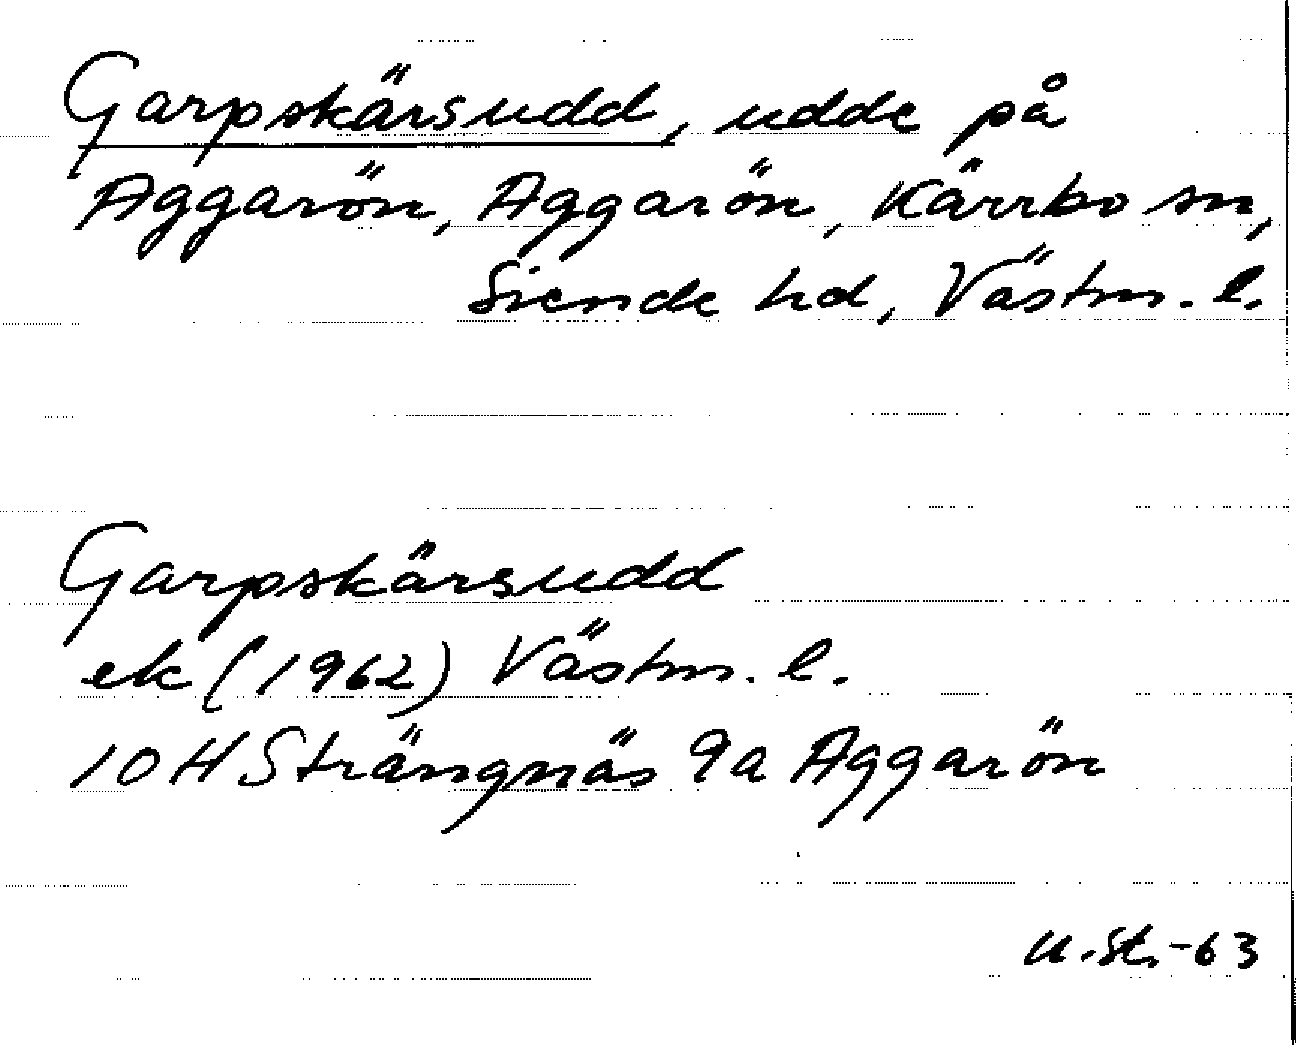 Garpskärsudd, udde på
Aggarön, Aggarön, Kärrbo sn,
Siende hd, Västm. l.
Garpskärsudd
ek (1962) Västm. l.
10 H Strängnäs 9a Aggarön
U. St. -63